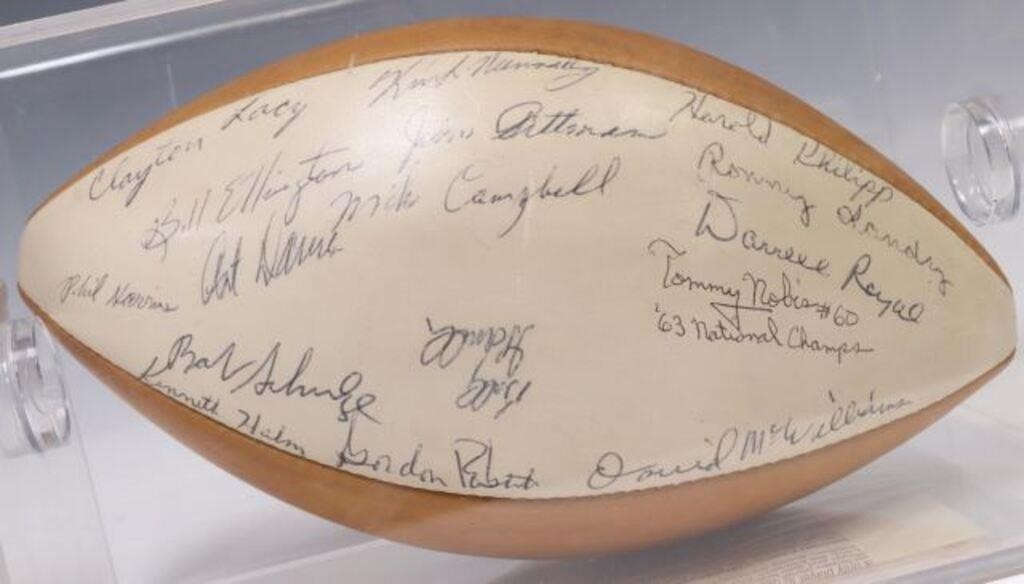 Clayton Lacy
Jim Bittman
Harold Philipp
Bill Ellington
Mike Campbell
Ronny Landry
Art Davis
Darrell Royal
Phil Harris
Tommy Nobis #60
'63 National Champs
Bob Schulze
Kenneth Halm
Gordon
David McWilliams
Bill